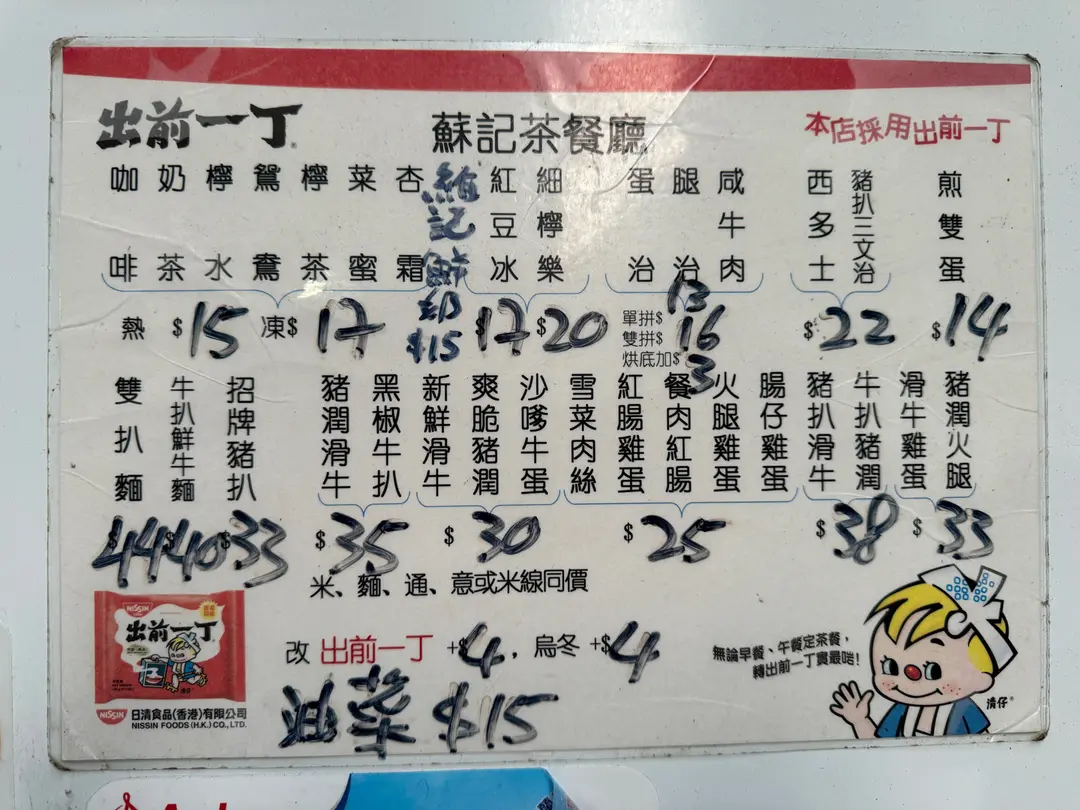 出前一丁
蘇記茶餐廳
本店採用出前一丁
咖啡
奶茶
檸水
鴛鴦
檸茶
菜蜜
杏霜
紅豆冰
細檸樂
蛋治
腿治
咸牛肉
西多士
豬扒三文治
煎雙蛋
熱 $15
凍$ 17
$15
$17
$20
單拼$ 13
雙拼$ 16
烘底加$ 3
$22
$14
雙扒麵
牛扒鮮牛麵
招牌豬扒
豬潤滑牛
黑椒牛扒
新鮮滑牛
爽脆豬潤
沙嗲牛蛋
雪菜肉絲
紅腸雞蛋
餐肉紅腸
火腿雞蛋
腸仔雞蛋
豬扒滑牛
牛扒豬潤
滑牛雞蛋
豬潤火腿
44
$40
$33
$35
$30
$25
$38
$33
米、麵、通、意或米線同價
改 出前一丁 +$4, 烏冬 +$4
無論早餐、午餐定茶餐,
轉出前一丁實最啱!
菜 $15
NISSIN
出前一丁
NISSIN 日清食品(香港)有限公司
NISSIN FOODS (H.K.) CO., LTD.
清仔